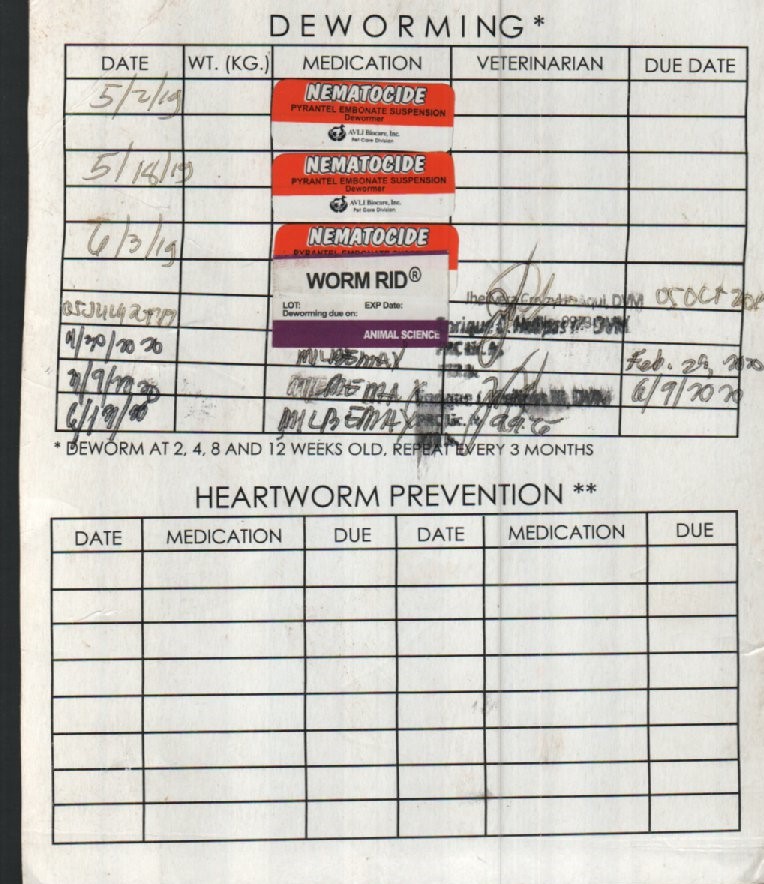 DEWORMING*
DATE WT. (KG.) MEDICATION VETERINARIAN DUE DATE
5/2/19 NEMATOCIDE
PYRANTEL EMBONATE SUSPENSION
Dewormer
AVLI Biocare, Inc.
Pet Care Division
5/18/19 NEMATOCIDE
PYRANTEL EMBONATE SUSPENSION
Dewormer
AVLI Biocare, Inc.
Pet Care Division
6/3/19 NEMATOCIDE
PYRANTEL EMBONATE SUSPENSION
WORM RID®
LOT: EXP Date:
Deworming due on:
ANIMAL SCIENCE
DVM 05 OCT
05 JULY DVM
MILBEMAX Feb. 29, 2020
6/9/2020
MILBEMAX
* DEWORM AT 2, 4, 8 AND 12 WEEKS OLD, REPEAT EVERY 3 MONTHS
HEARTWORM PREVENTION **
DATE MEDICATION DUE DATE MEDICATION DUE